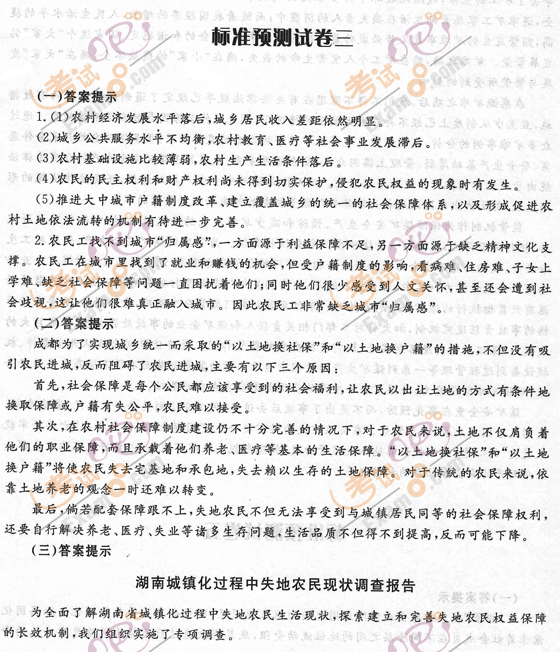 标准预测试卷三
(一)答案提示
1.(1)农村经济发展水平落后,城乡居民收入差距依然明显。
(2)城乡公共服务水平不均衡,农村教育、医疗等社会事业发展滞后。
(3)农村基础设施比较薄弱,农村生产生活条件落后。
(4)农民的民主权利和财产权利尚未得到切实保护,侵犯农民权益的现象时有发生。
(5)推进大中城市户籍制度改革、建立覆盖城乡的统一的社会保障体系,以及形成促进农
村土地依法流转的机制有待进一步完善。
2.农民工找不到城市“归属感”,一方面源于利益保障不足,另一方面源于缺乏精神文化支
撑。农民工在城市里找到了就业和赚钱的机会,但受户籍制度的影响,看病难、住房难、子女上
学难、缺乏社会保障等问题一直困扰着他们;同时他们很少感受到人文关怀,甚至还会遭到社
会歧视,这让他们很难真正融入城市。因此农民工非常缺乏城市“归属感”。
(二)答案提示
成都为了实现城乡统一而采取的“以土地换社保”和“以土地换户籍”的措施,不但没有吸
引农民进城,反而阻碍了农民进城,主要有以下三个原因:
首先,社会保障是每个公民都应该享受到的社会福利,让农民以出让土地的方式有条件地
换取保障或户籍有失公平,农民难以接受。
其次,在农村社会保障制度建设仍不十分完善的情况下,对于农民来说,土地不仅肩负着
他们的职业保障,而且承载着他们养老、医疗等基本的生活保障。“以土地换社保”和“以土地
换户籍”将使农民失去宅基地和承包地,失去赖以生存的土地保障。对于传统的农民来说,依
靠土地养老的观念一时还难以转变。
最后,倘若配套保障跟不上,失地农民不但无法享受到与城镇居民同等的社会保障权利,
还要自行解决养老、医疗、失业等诸多生存问题,生活品质不但得不到提高,反而可能下降。
(三)答案提示
湖南城镇化过程中失地农民现状调查报告
为全面了解湖南省城镇化过程中失地农民生活现状,探索建立和完善失地农民权益保障
的长效机制,我们组织实施了专项调查。